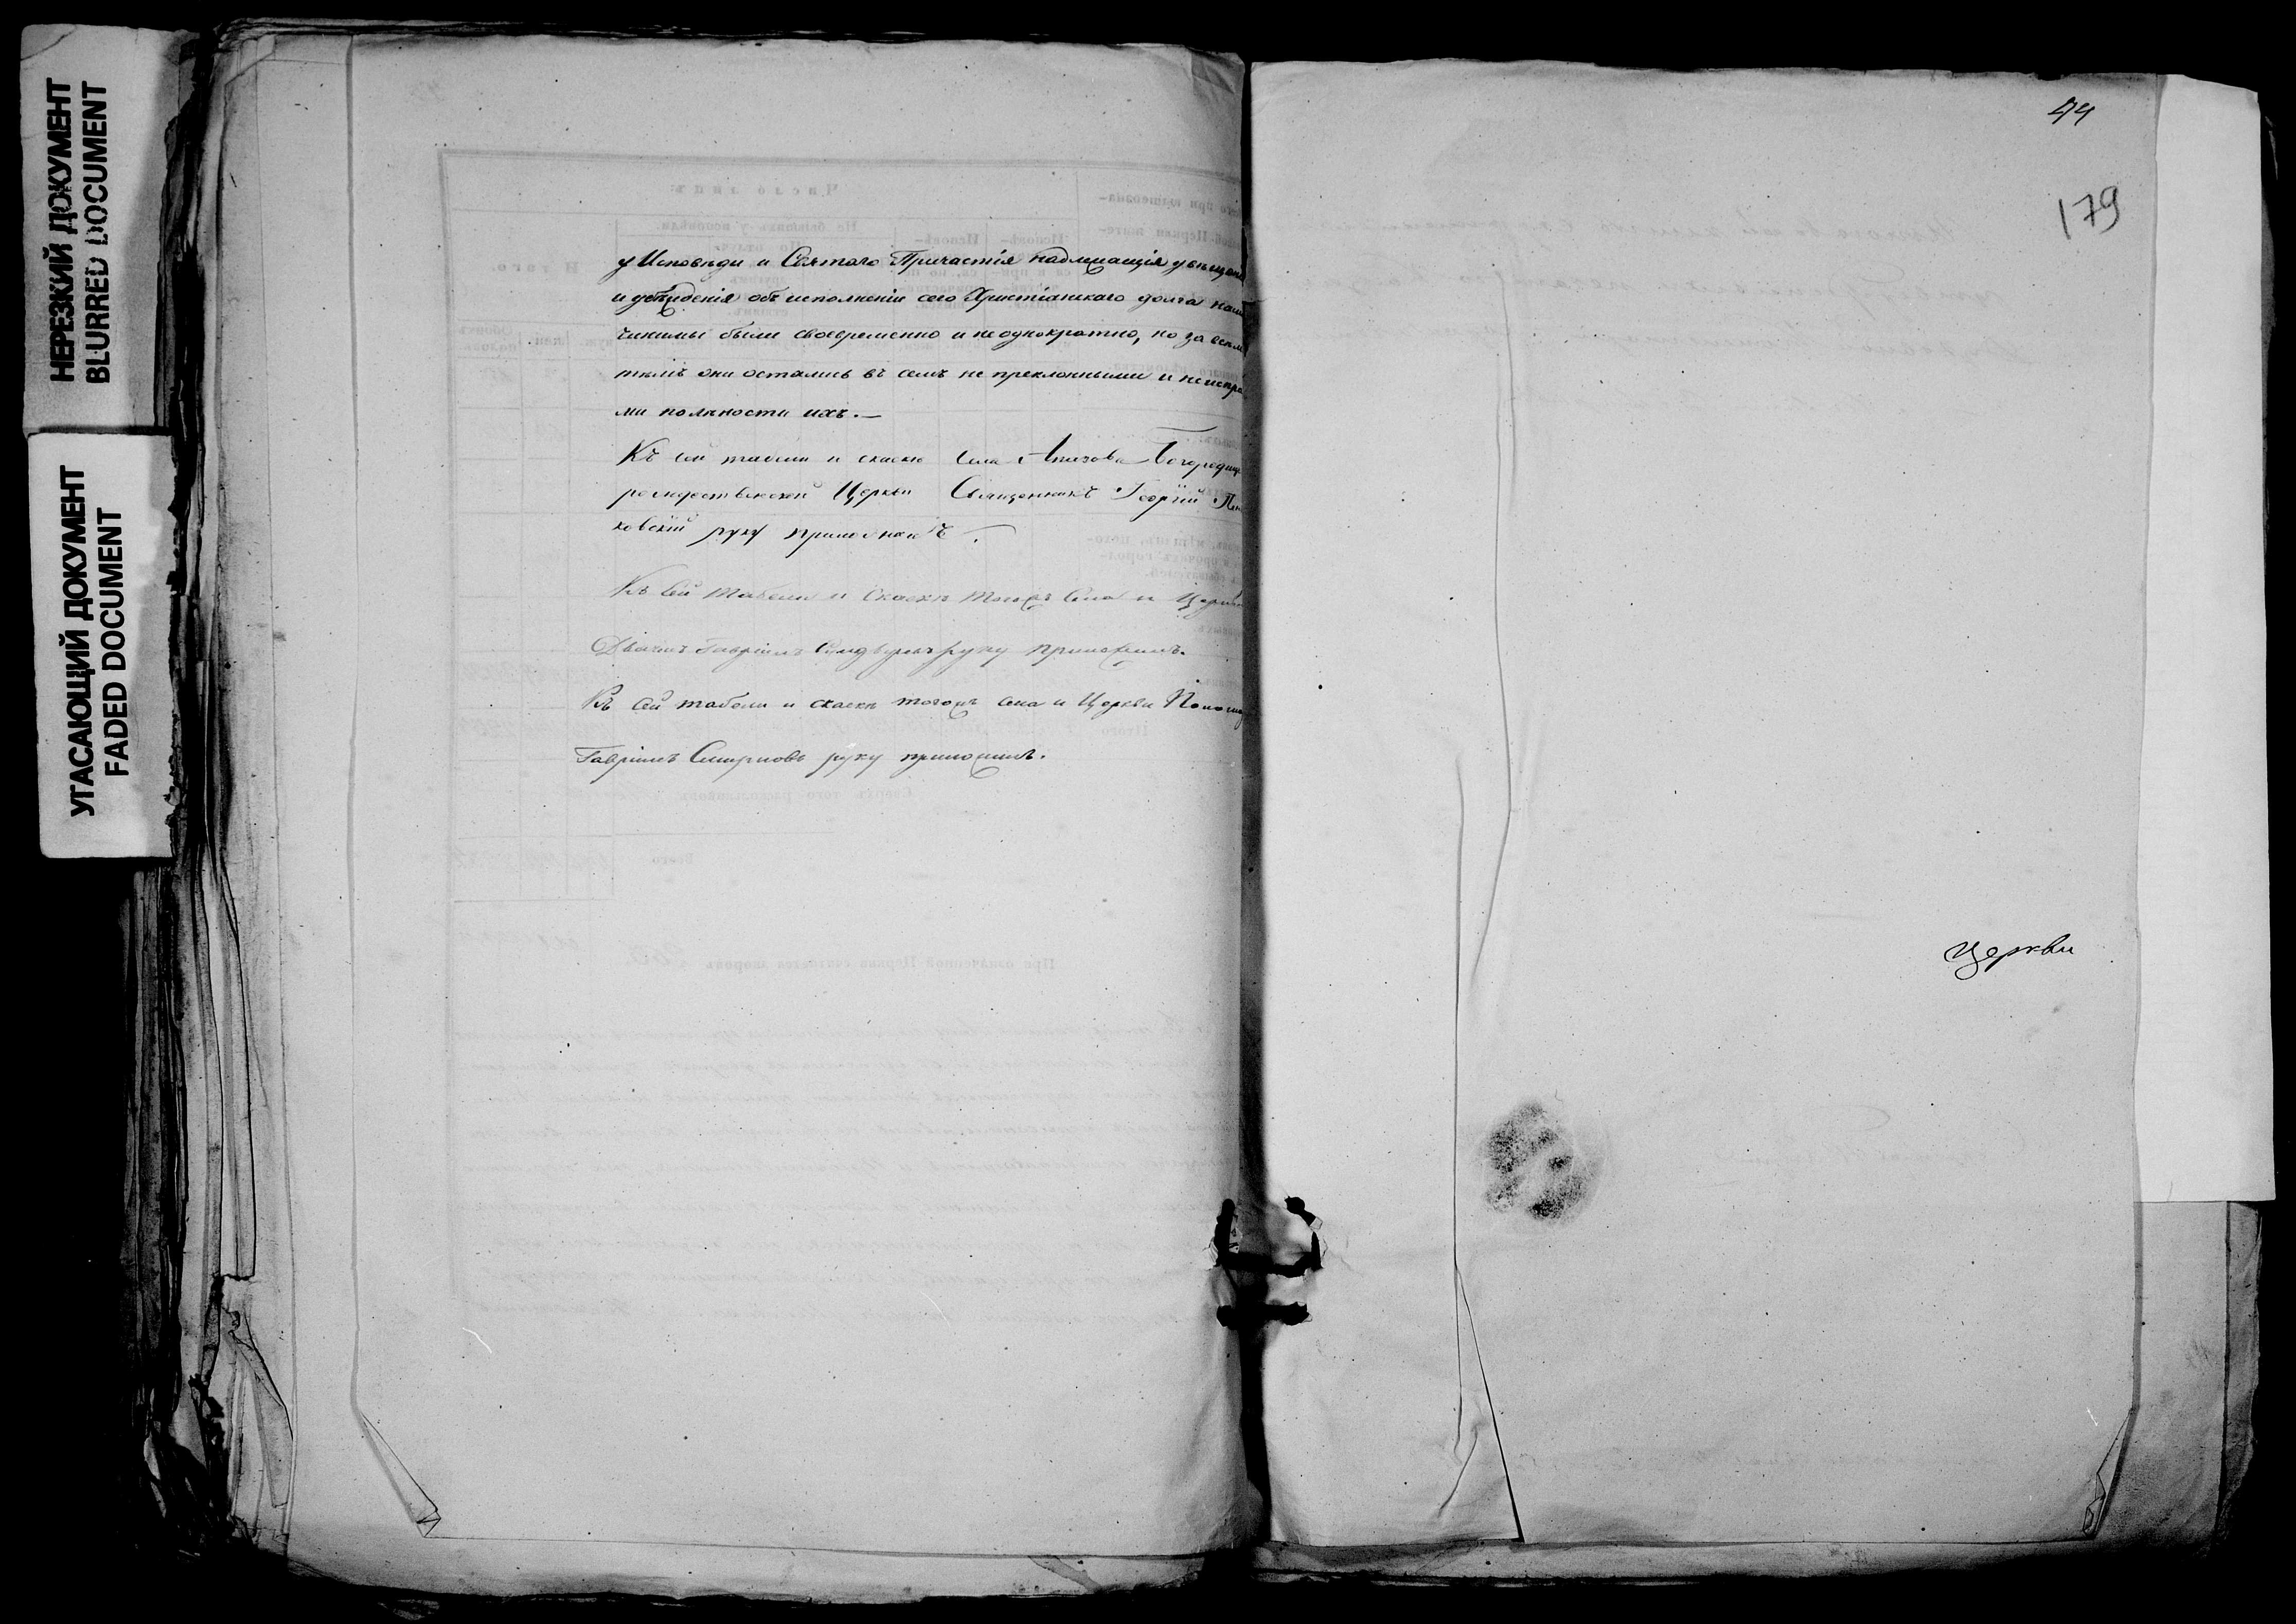 НЕРЕЗКИЙ ДОКУМЕНТ
BLURRED DOCUMENT
УГАСАЮЩИЙ ДОКУМЕНТ
FADED DOCUMENT
у Исповѣди и Святаго Причастія надлежащія увѣщанія
и убѣжденія объ исполненіи сего Христіанскаго долга нами
чинимы были своевременно и неоднократно, но за всѣмъ
тѣмъ они остались въ семъ не преклонными и
ми полности ихъ. —
Къ сей табели и сказкѣ Села Богородице
рождественской Церкви Священникъ Георгій
ковскій руку приложилъ.
Къ сей табели и сказкѣ тогожъ села и Церкви
Дьячекъ Гавріилъ руку приложилъ.
Къ сей табели и сказкѣ тогожъ села и Церкви Пономарь
Гавріилъ Смирновъ руку приложилъ.
44
179
Церкви